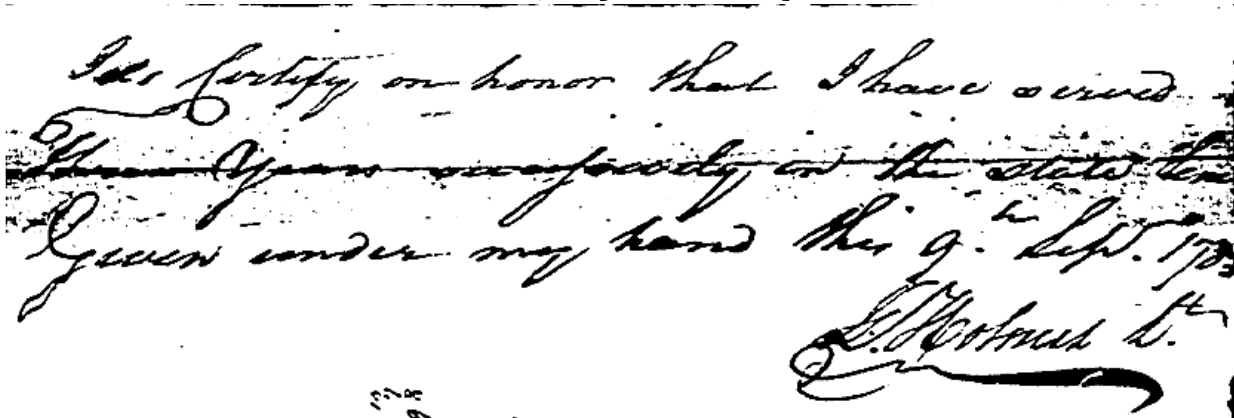 I do Certify on honor that I have served
Three Years successively in the state line
Given under my hand this 9.th Sep.r 1783
Holmes Lt.